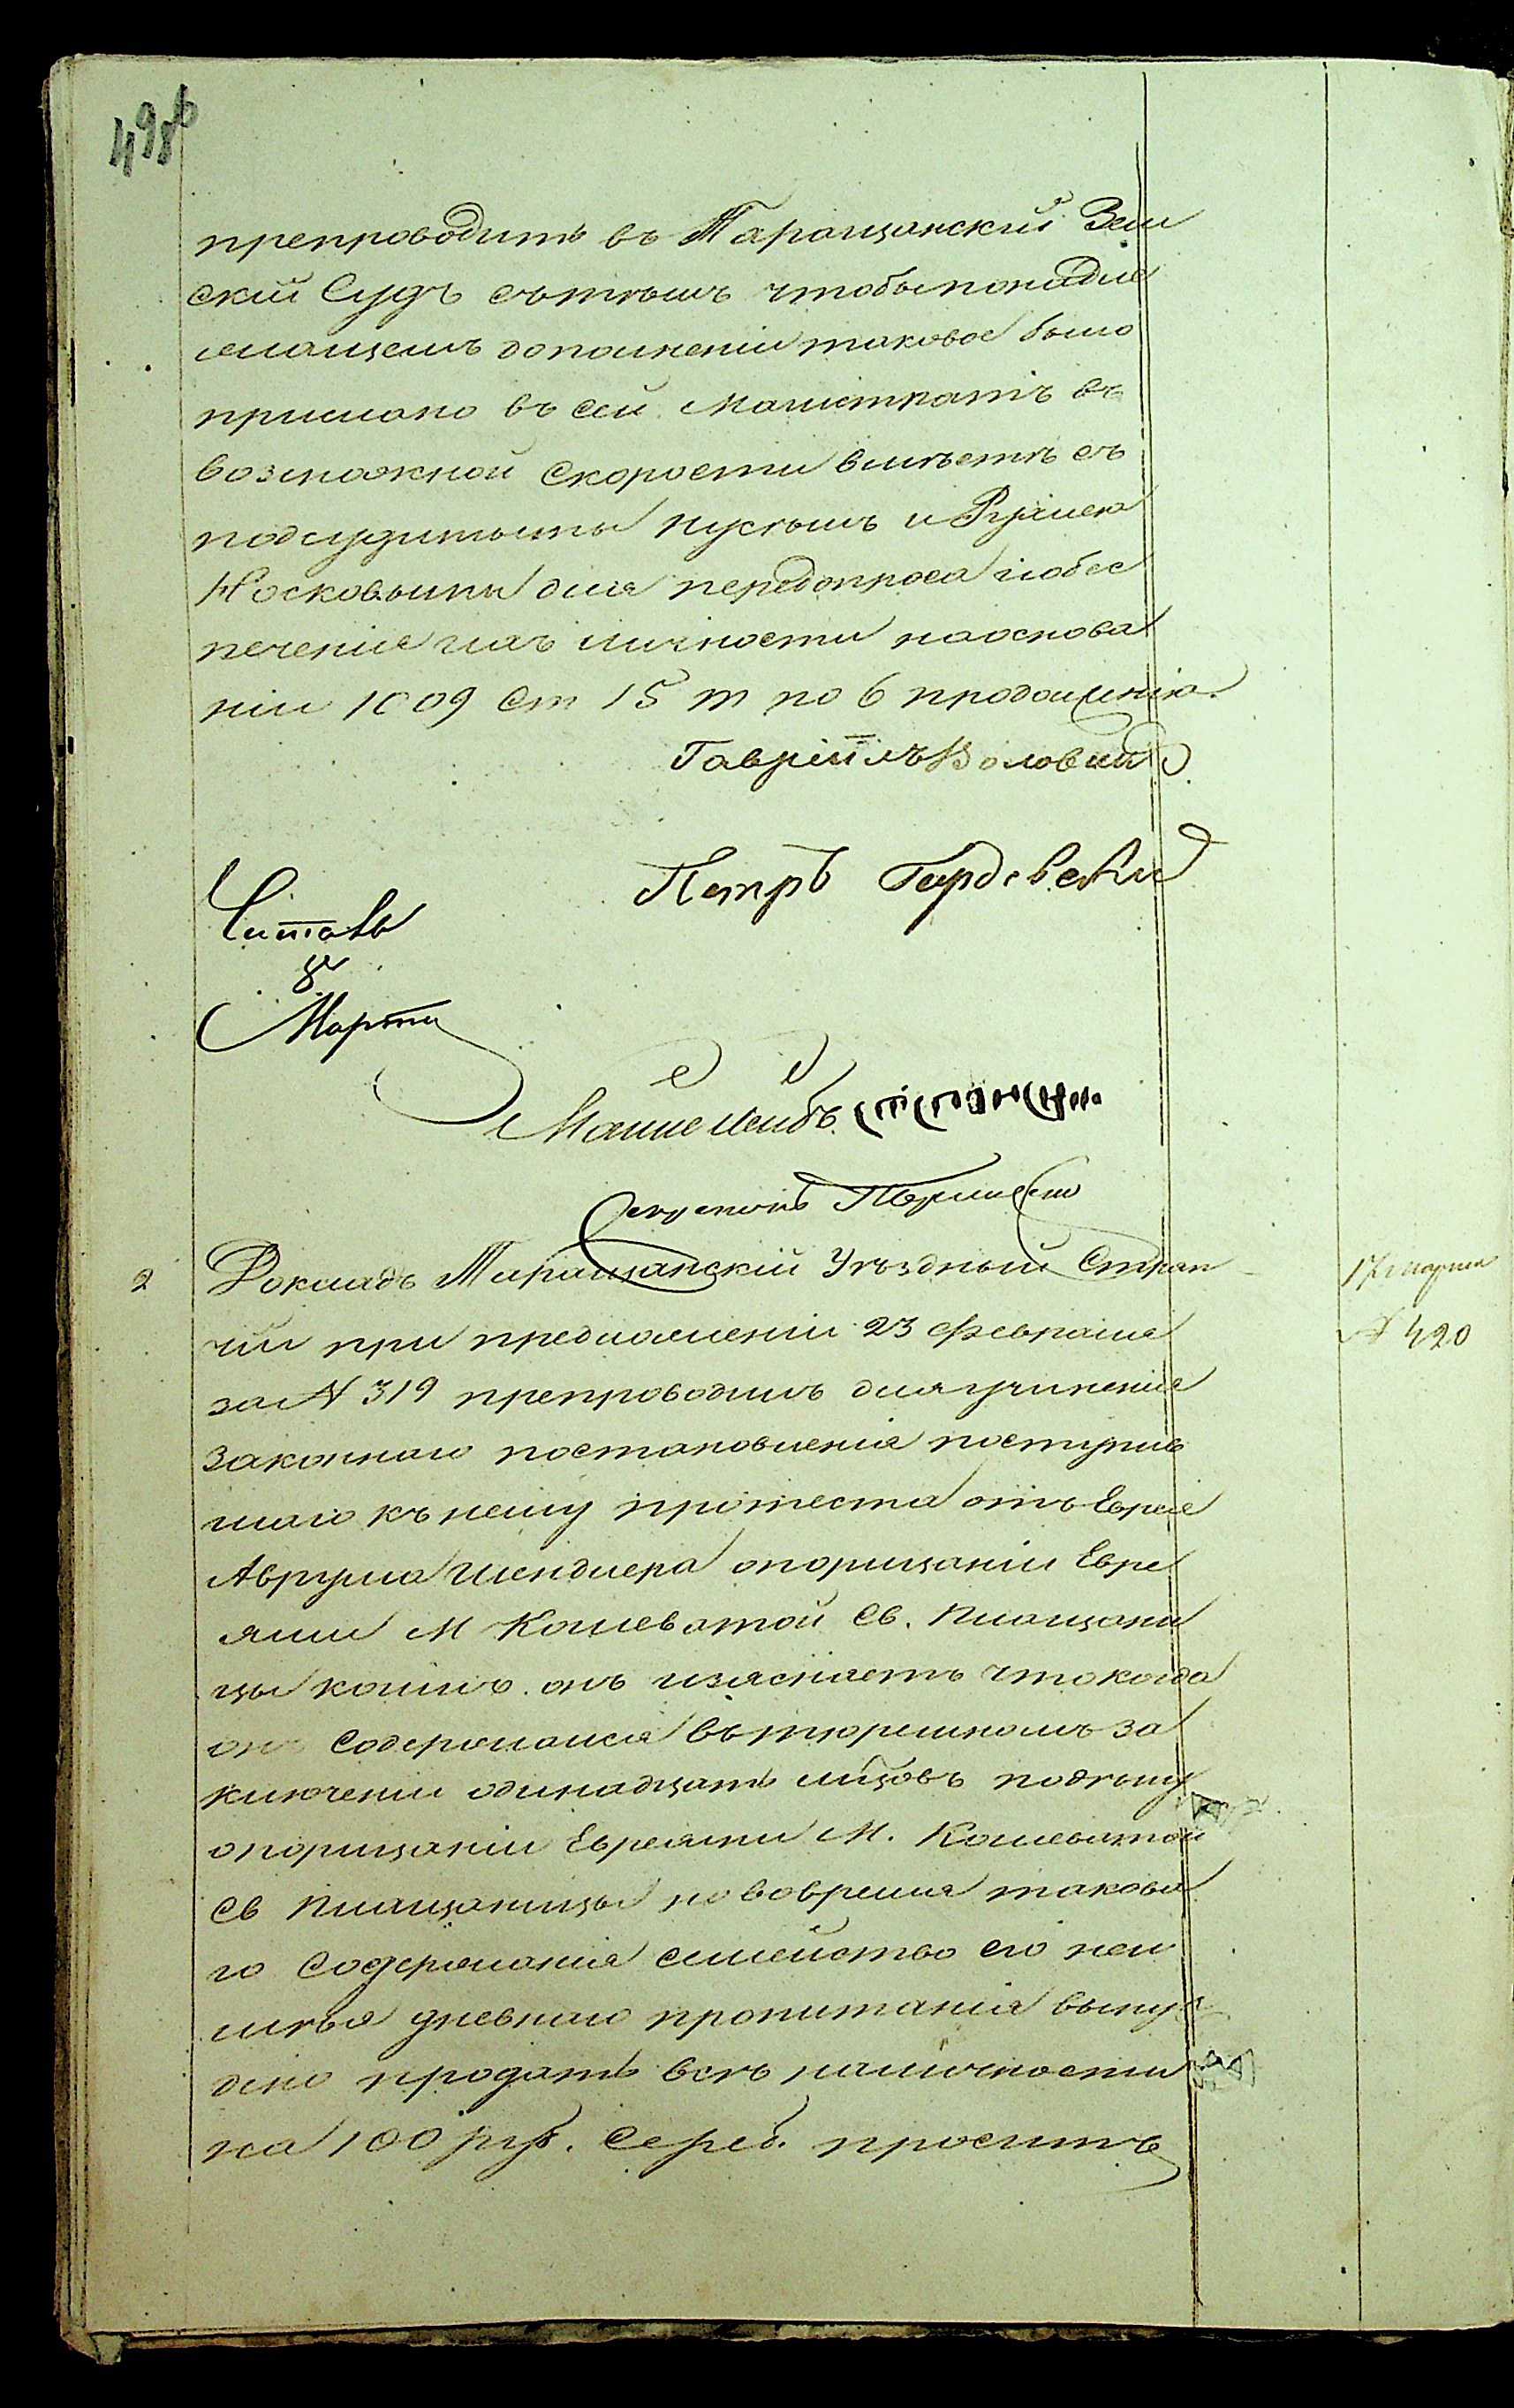 498б
препроводить въ Таращанскій Зем
скій Судъ съ тѣмъ чтобы по надле
жащемъ дополненіи таковое было
прислано въ сей Магистратъ въ
возможной скорости вмѣстѣ съ
подсудимыми
Носковыми для передопроса и обес
печенія ихъ личности на основа
ніи 1009 Ст 15 т по 6 продолженію
Гавріилъ
Петръ
Читалъ
8
Марта
Секретарь
2 Докладъ Таращанскій Уѣздный Стряп
17 марта
чій при предложеніи 23 февраля
№ 420
за № 319 препроводилъ для учиненія
законнаго постановленія поступив
шаго къ нему протеста отъ Еврея
Аврума Шендлера о порицаніи Евре
ями М Кошеватой Св. Плащани
цы коимъ онъ изясняетъ что когда
онъ содержался въ тюремномъ за
ключеніи одинадцать
о порицаніи Евреями М. Кошеватой
Св Плащаницы но во время таковаго
го Содержанія семейство его неи
мѣя дневнаго пропитанія вынуж
дено продать всѣ наличности
на 100 руб. Сереб. проситъ